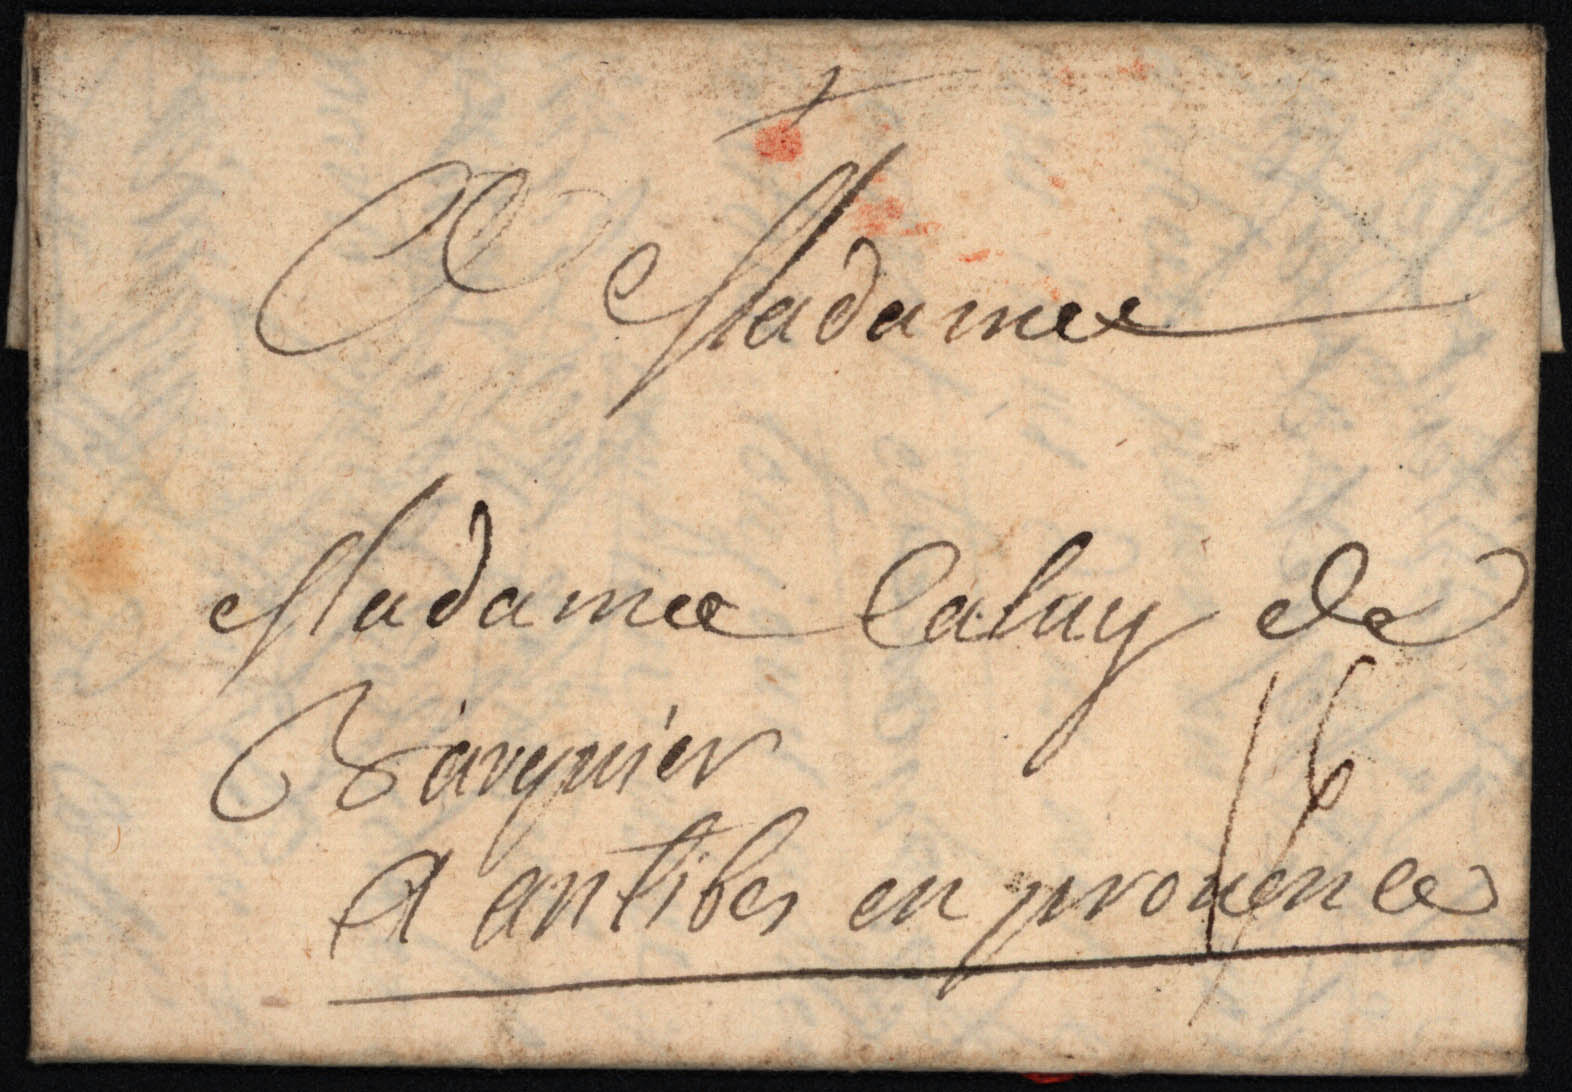 A Madame
Madame Caluy de
Varquier
16
A antibes en prouence